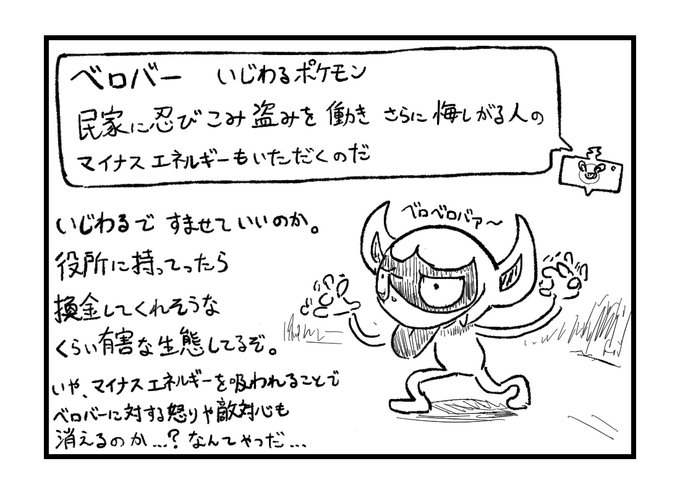 ベロバー いじわるポケモン
民家に忍びこみ盗みを働き さらに悔しがる人の
マイナスエネルギーもいただくのだ
いじわるで すませていいのか。
役所に持ってったら
換金してくれそうな
くらい有害な生態してるぞ。
いや、マイナスエネルギーを吸われることで
ベロバーに対する怒りや敵対心も
消えるのか…?なんてやつだ…
ベロベロバァ〜